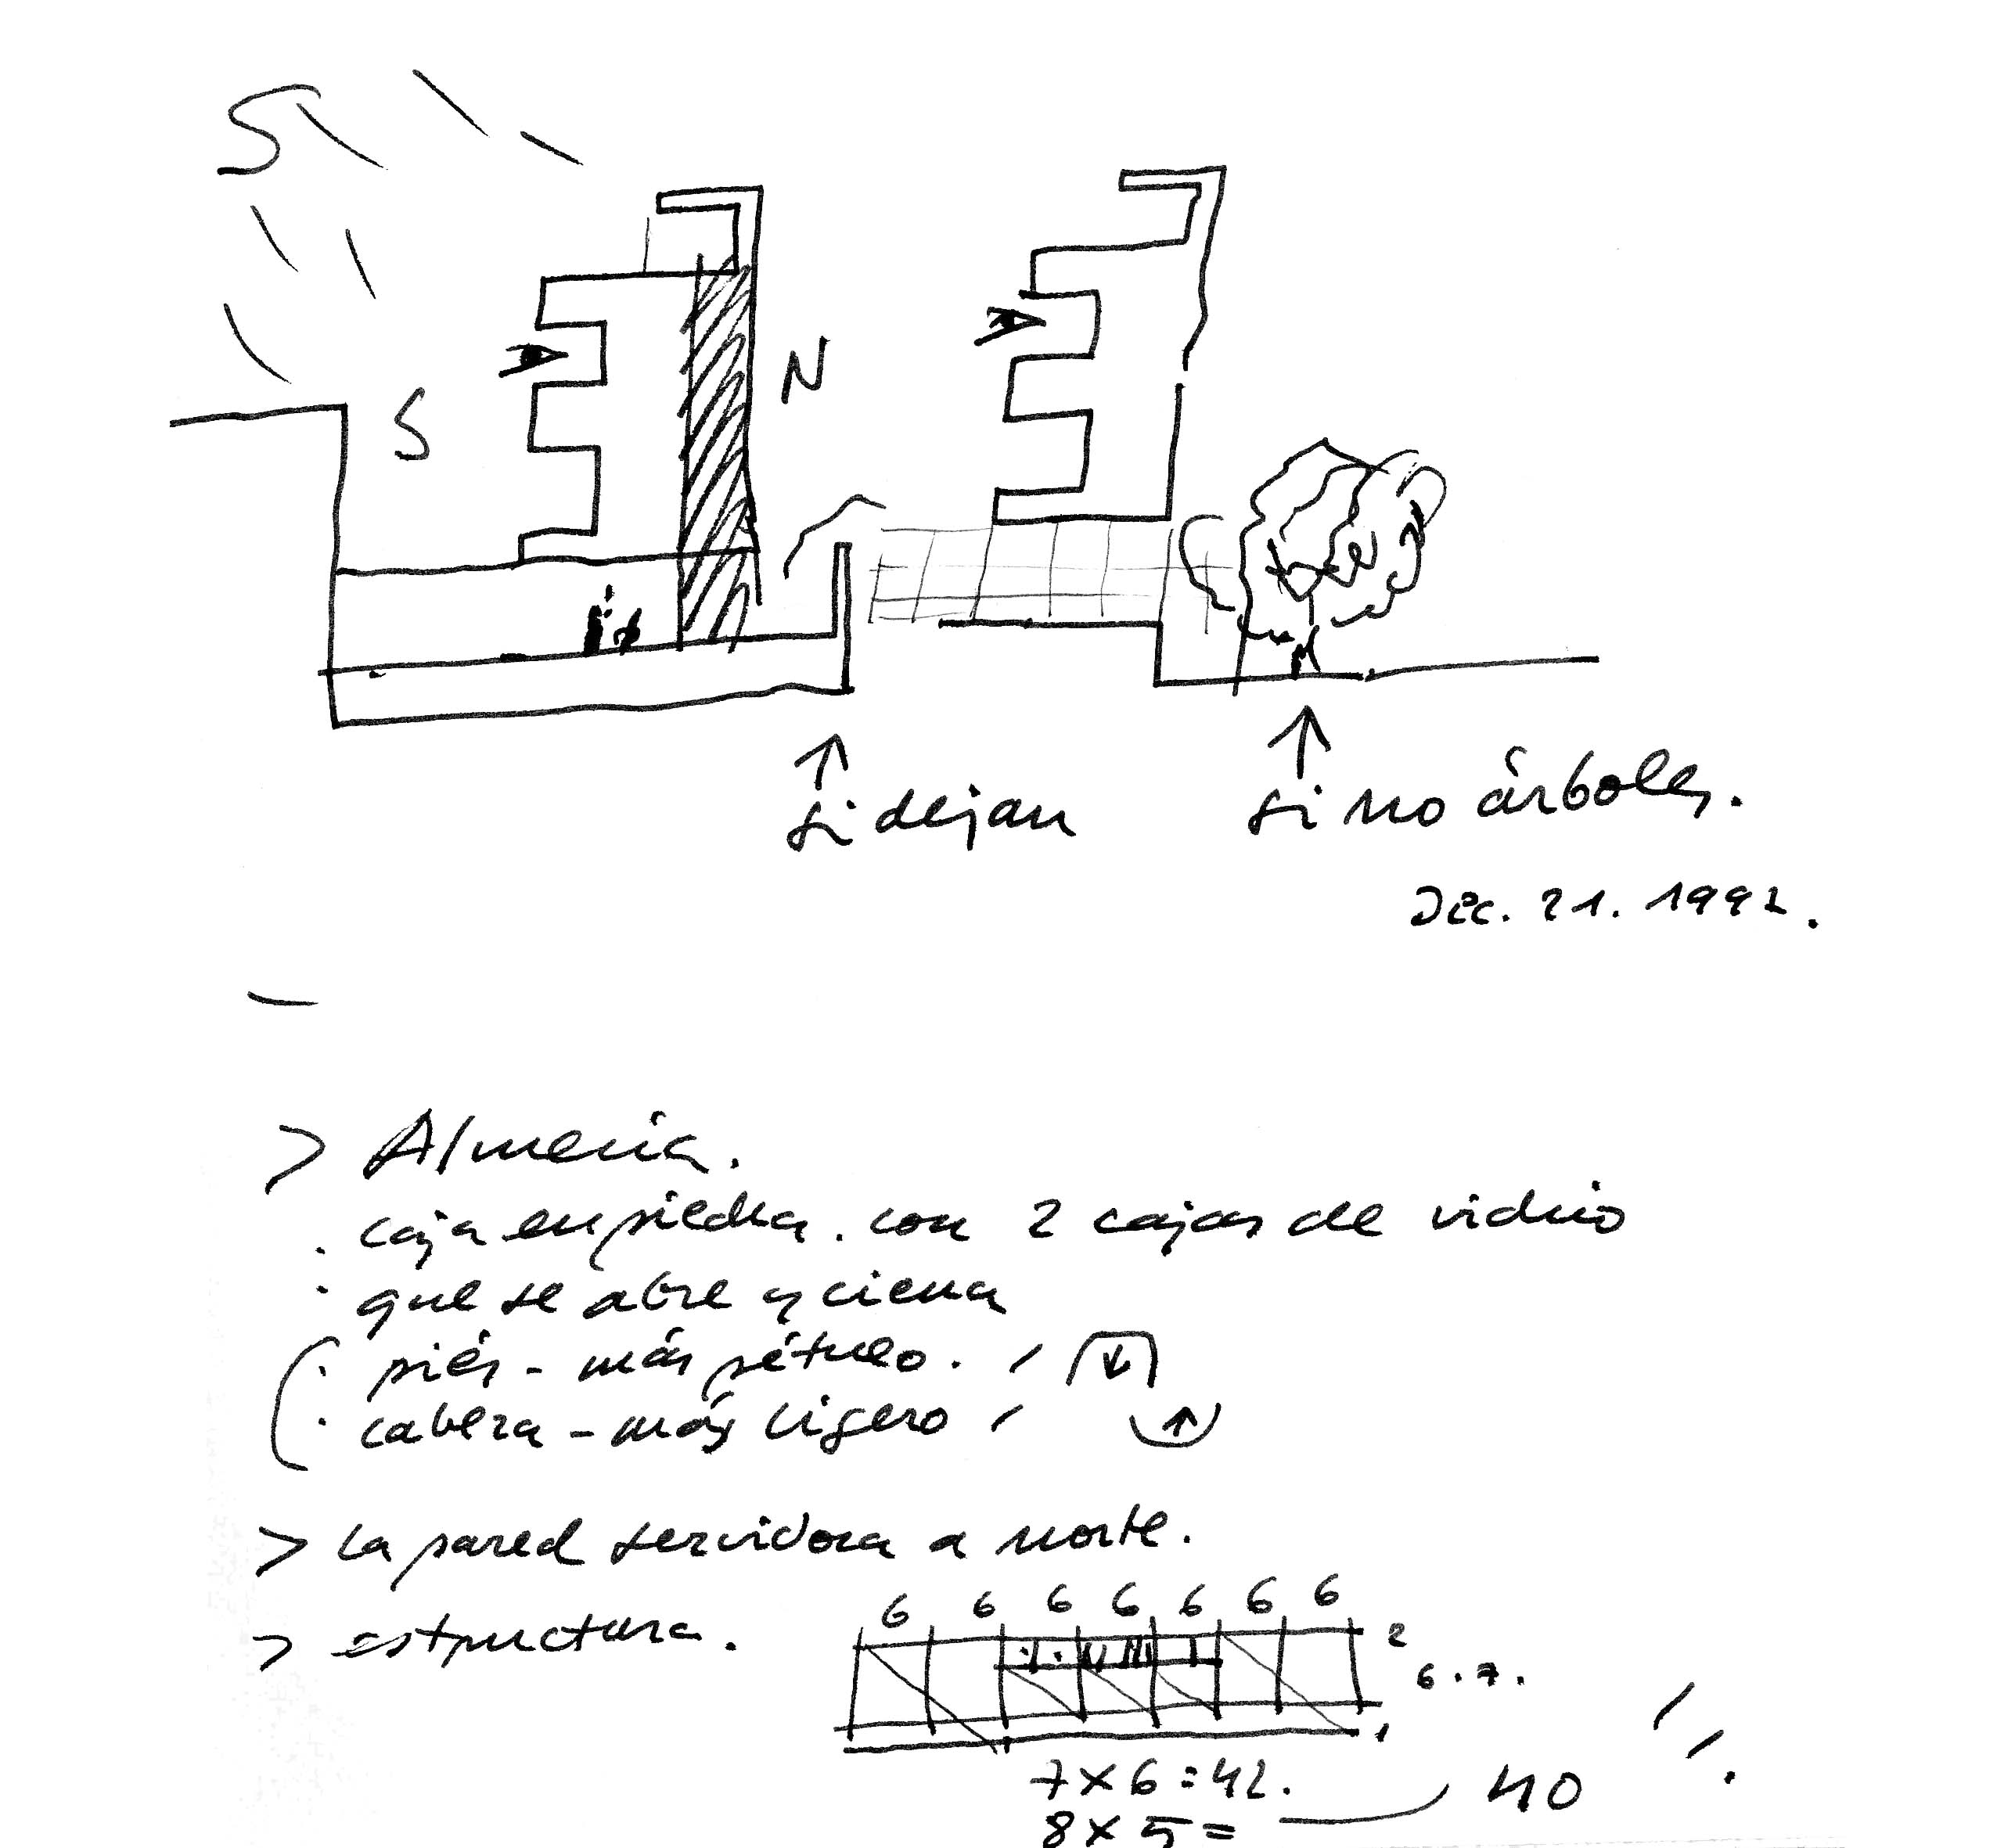 S
S
N
si dejan
si no árboles.
Dec. 21. 1992.
> Almería.
. caja en piedra. con 2 cajas de vidrio
: que se abre y cierra
: piés - más pétreo.
: cabeza - más ligero
> la pared servidora a norte.
> estructura.
6 6 6 6 6 6 6
2
6.7.
1
7 x 6 = 42.
8 x 5 = 40